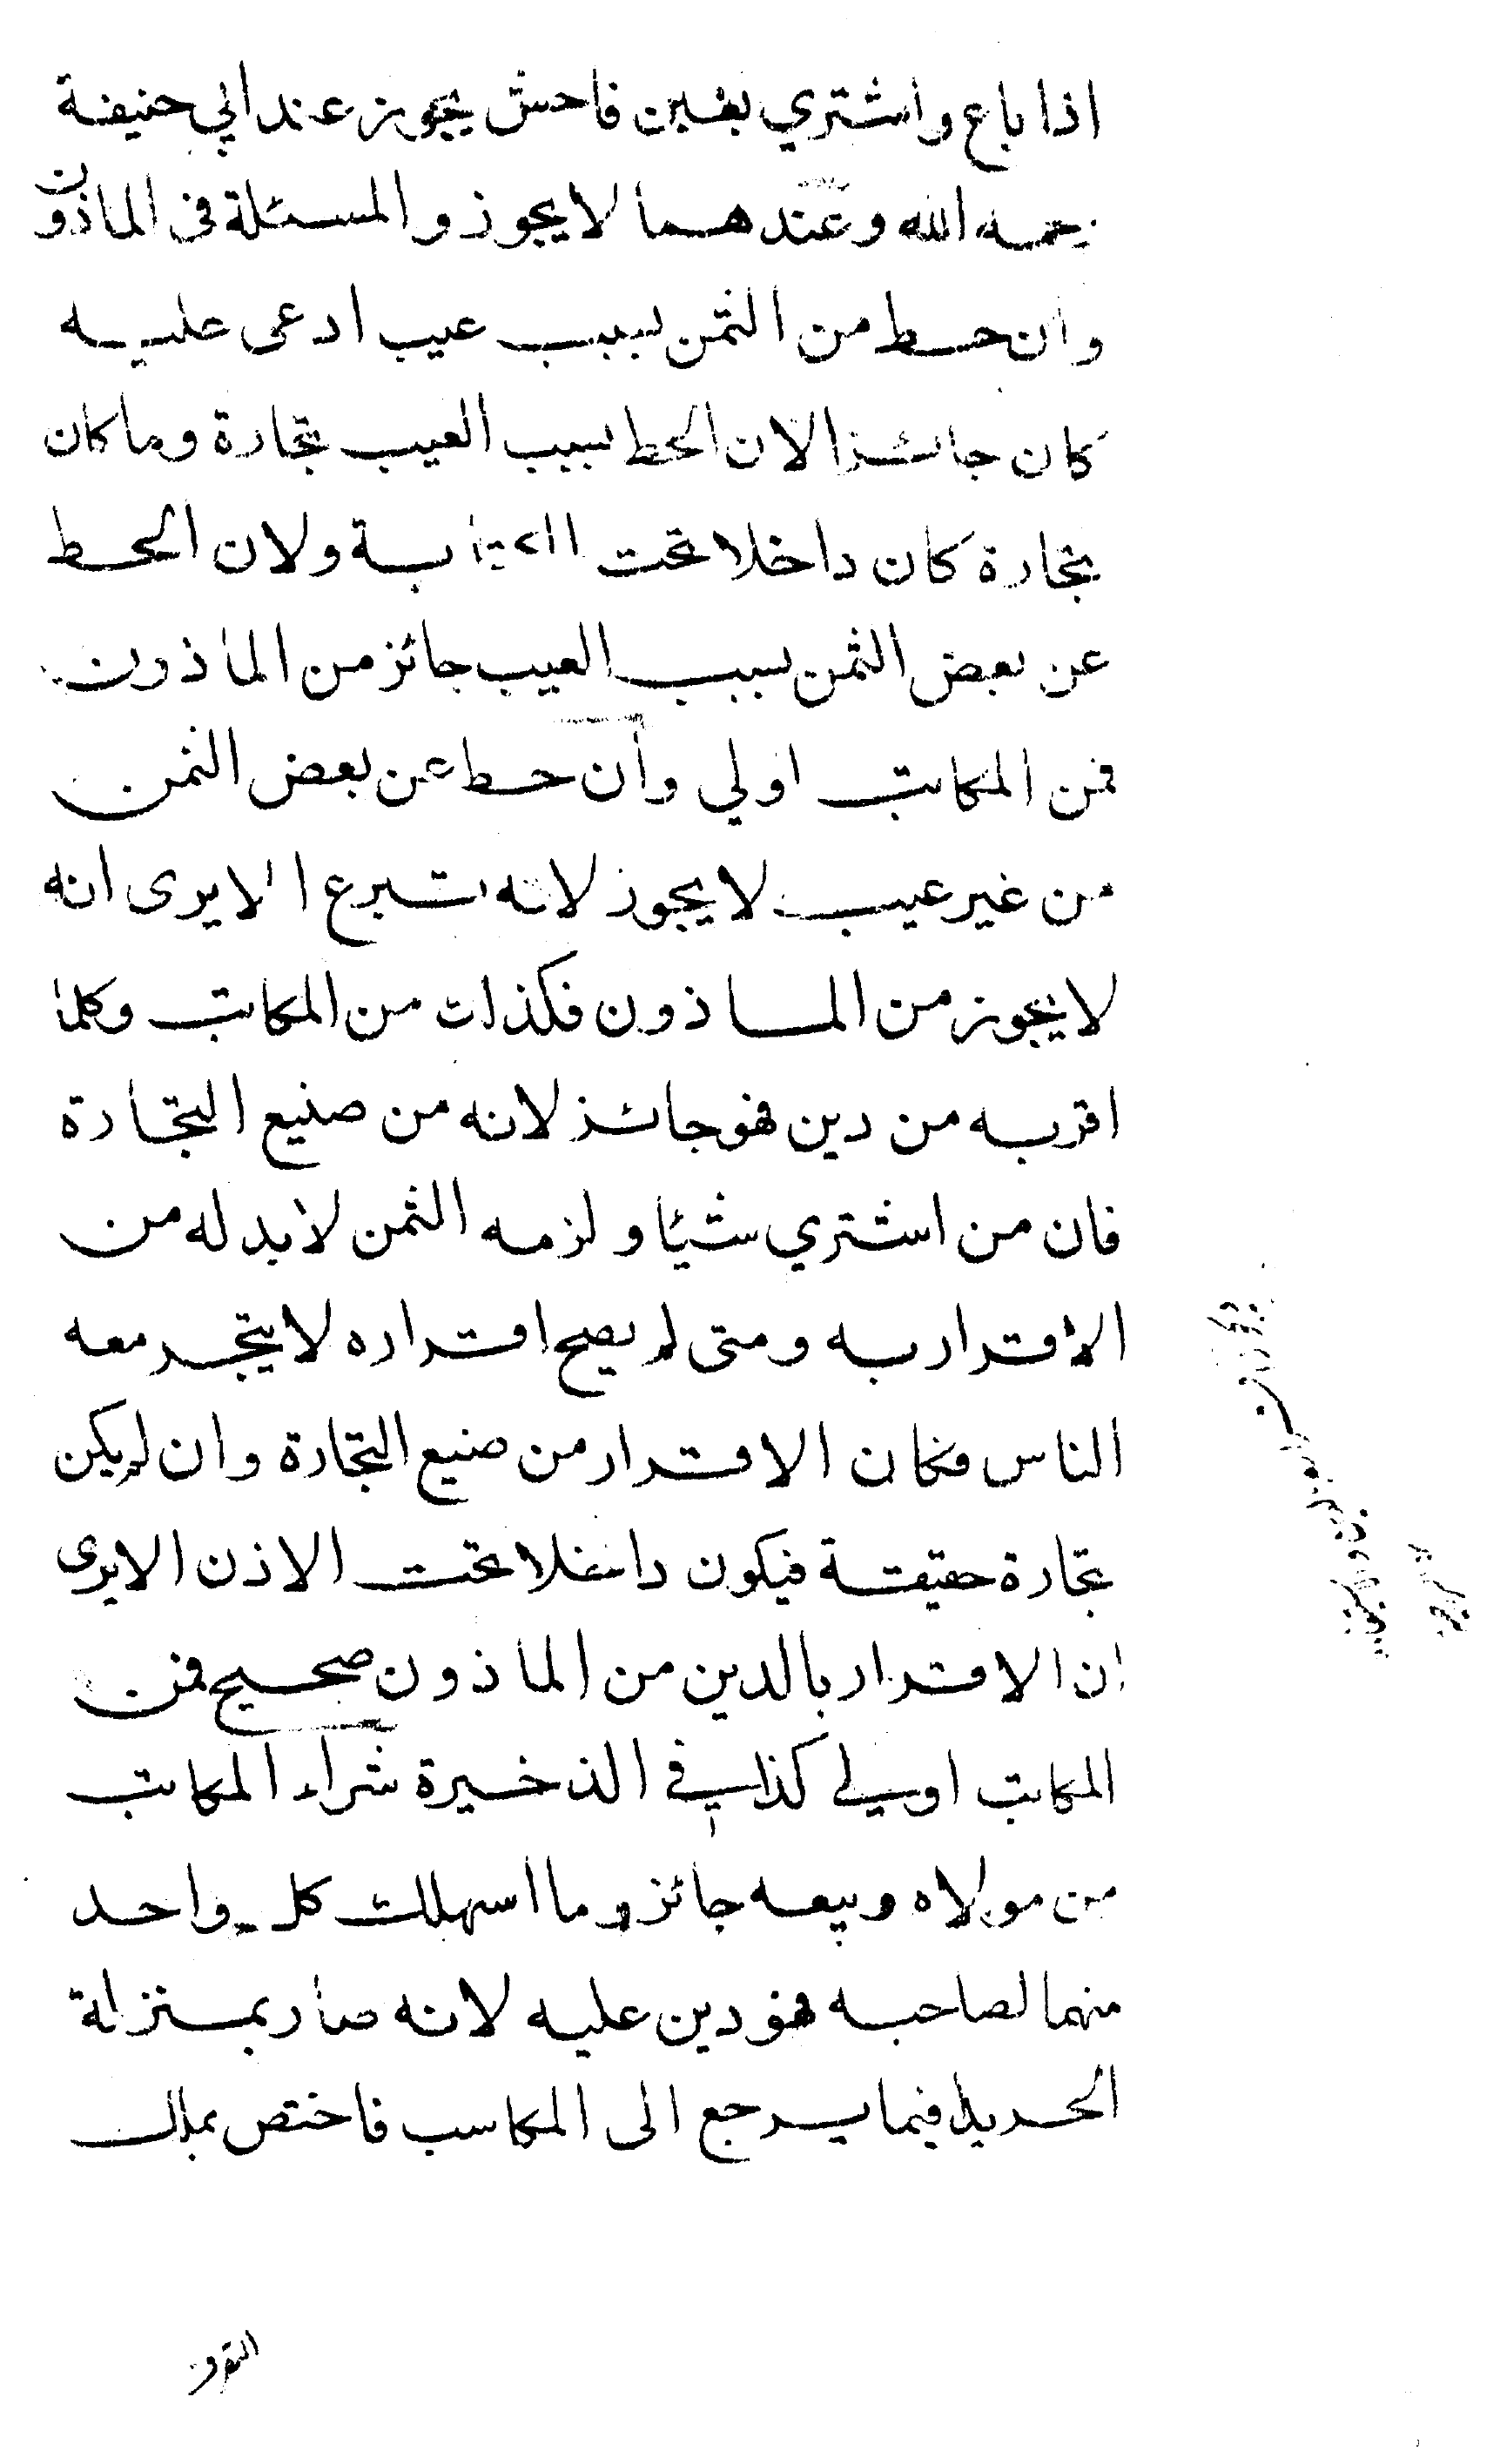 اذا باع واشتري بغبن فاحش يجوز عند ابي حنيفة
رحمه الله وعندهما لا يجوز والمسئلة فى الماذون
وان حط من الثمن بسبب عيب ادعى عليه
كان جائزا لان الحط بسبب العيب تجارة وما كان
تجارة كان داخلا تحت الكتابة ولان الحط
عن بعض الثمن بسبب العيب جائز من الماذون
فمن المكاتب اولي وان حط عن بعض الثمن
من غير عيب لا يجوز لانه تبرع الا يرى انه
لا يجوز من الماذون فكذلك من المكاتب وكلما
اقر به من دين فهو جائز لانه من صنيع التجارة
فان من اشتري شيئا ولزمه الثمن لا بد له من
الاقرار به ومتى لم يصح اقراره لا يتجر معه
الناس فكان الاقرار من صنيع التجارة وان لم يكن
تجارة حقيقة فيكون داخلا تحت الاذن الا يرى
ان الاقرار بالدين من الماذون صحيح فمن
المكاتب اولي كذا في الذخيرة شراء المكاتب
من مولاه وبيعه جائز وما استهلك كل واحد
منهما لصاحبه فهو دين عليه لانه صار بمنزلة
الحر يدا فيما يرجع الى المكاسب فاختص بملك